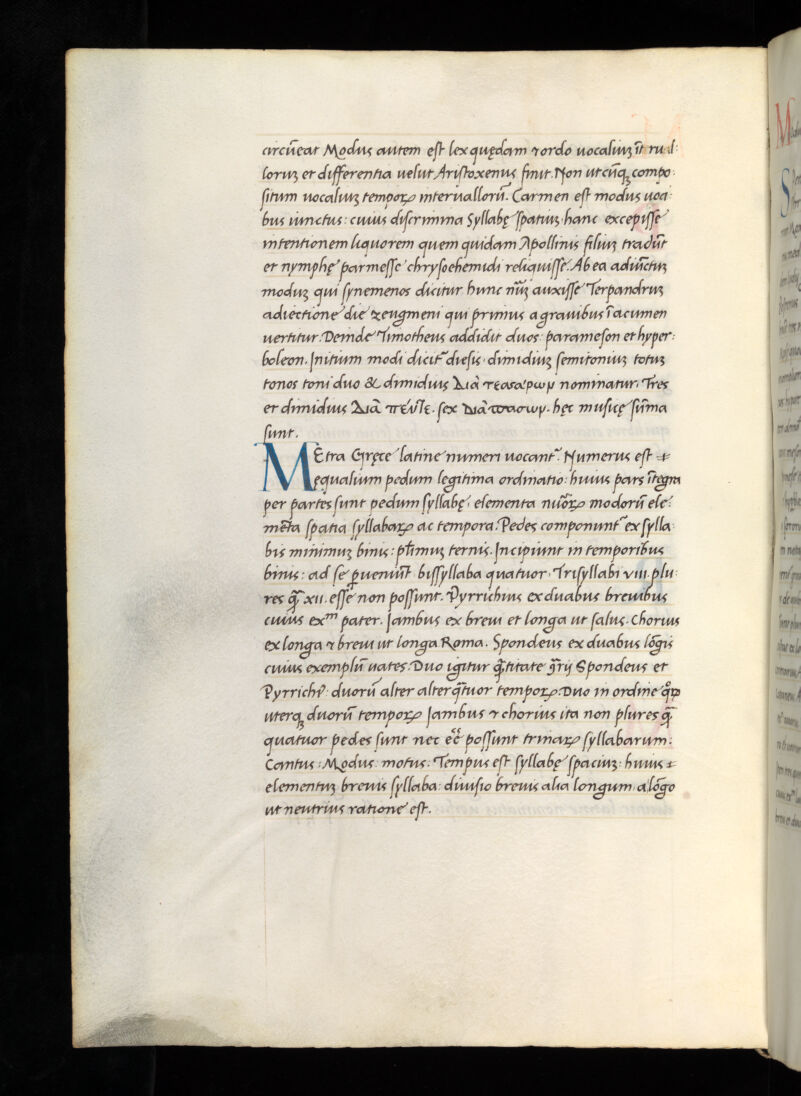 circūeat Modus autem est lex quędam ⁊ ordo uocaliuꝫ ĩt
loruꝫ et differentia uelut Aristoxenus finit. Non utcūqꝫ compo:
situm uocaliuꝫ tempoꝝ interuallorū. Carmen est modus uoci:
bus iunctus: cuius discrimina Syllabę spatiuꝫ. hanc excepisse
intentionem liquorem quem quidam Apollinis filiuꝫ tradūt
et nymphę parmesse chrysoehemidi reliquisse. Ab ea adiūctuꝫ
moduꝫ qui synemenos dicitur. hunc auxisse Terpandruꝫ
adiectione die zeugmeni qui primus a grauibus ĩ acumen
uertitur. Deinde Timotheus addidit duos: parameson et hyper:
boleon. Initium modi dicit᷑ diesis. dimidiuꝫ semitoniuꝫ totuꝫ
tonos toni duo & dimidius Διὰ τεσσάρωμ nominatur. Tres
et dimidius Διὰ πέντε. sex Διὰ πασωμ. hęc musicę sūma
sunt.
MEtra Gręce latine numeri uocant᷑. Numerus est
ęqualium pedum legitima ordinatio: huius pars ĩtegra
per partes sunt pedum syllabę, elementa nūoꝝ modorū ele:
mēta spatia syllabaꝝ ac tempora. Pedes componunt᷑ ex sylla:
bis minimuꝫ binis: plīmuꝫ ternis. Incipiunt in temporibus
binis: ad se ꝑueniūt bissyllaba quatuor. Trisyllabi viii. plu:
res xii. esse non possunt. Pyrrichius ex duabus breuibus
cuius exᵐ pater. Iambus ex breui et longa ut salus. Chorius
ex longa ⁊ breui ut longa Roma. Spondeus ex duabus lōgis
cuius exemplū uates. Duo igitur Spondeus et
duorū alter alter tempoꝝ. Duo in ordine
uterqꝫ duorū tempoꝝ Iambus ⁊ chorius ita non plures
quatuor pedes sunt nec possunt trinaꝝ syllabarum:
Cantus: Modus: motus: Tempus est syllabę spaciuꝫ: huius
elementuꝫ breuis syllaba: diuisio breuis alia longum. a lōgo
ut neutrius ratione est.